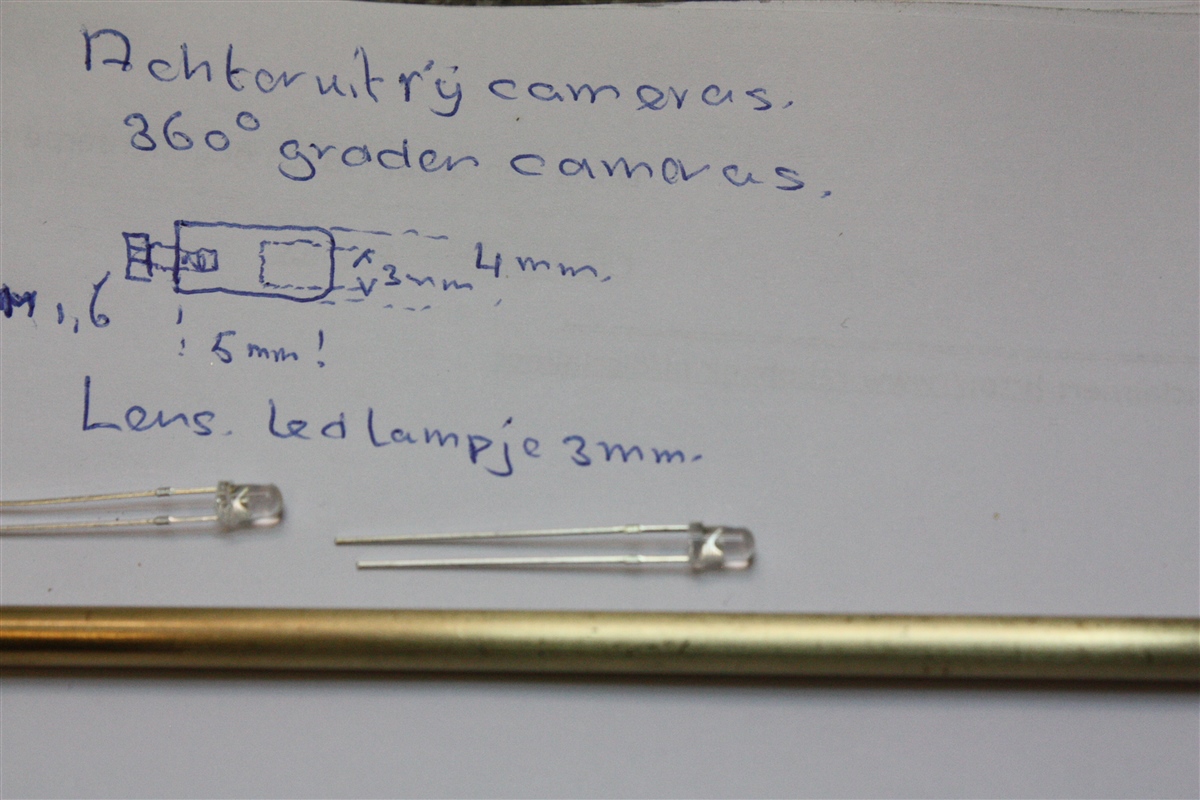 Achteruitrij cameras.
360° graden cameras.
4 mm.
3 mm
M 1,6
5 mm
Lens. Led lampje 3mm.